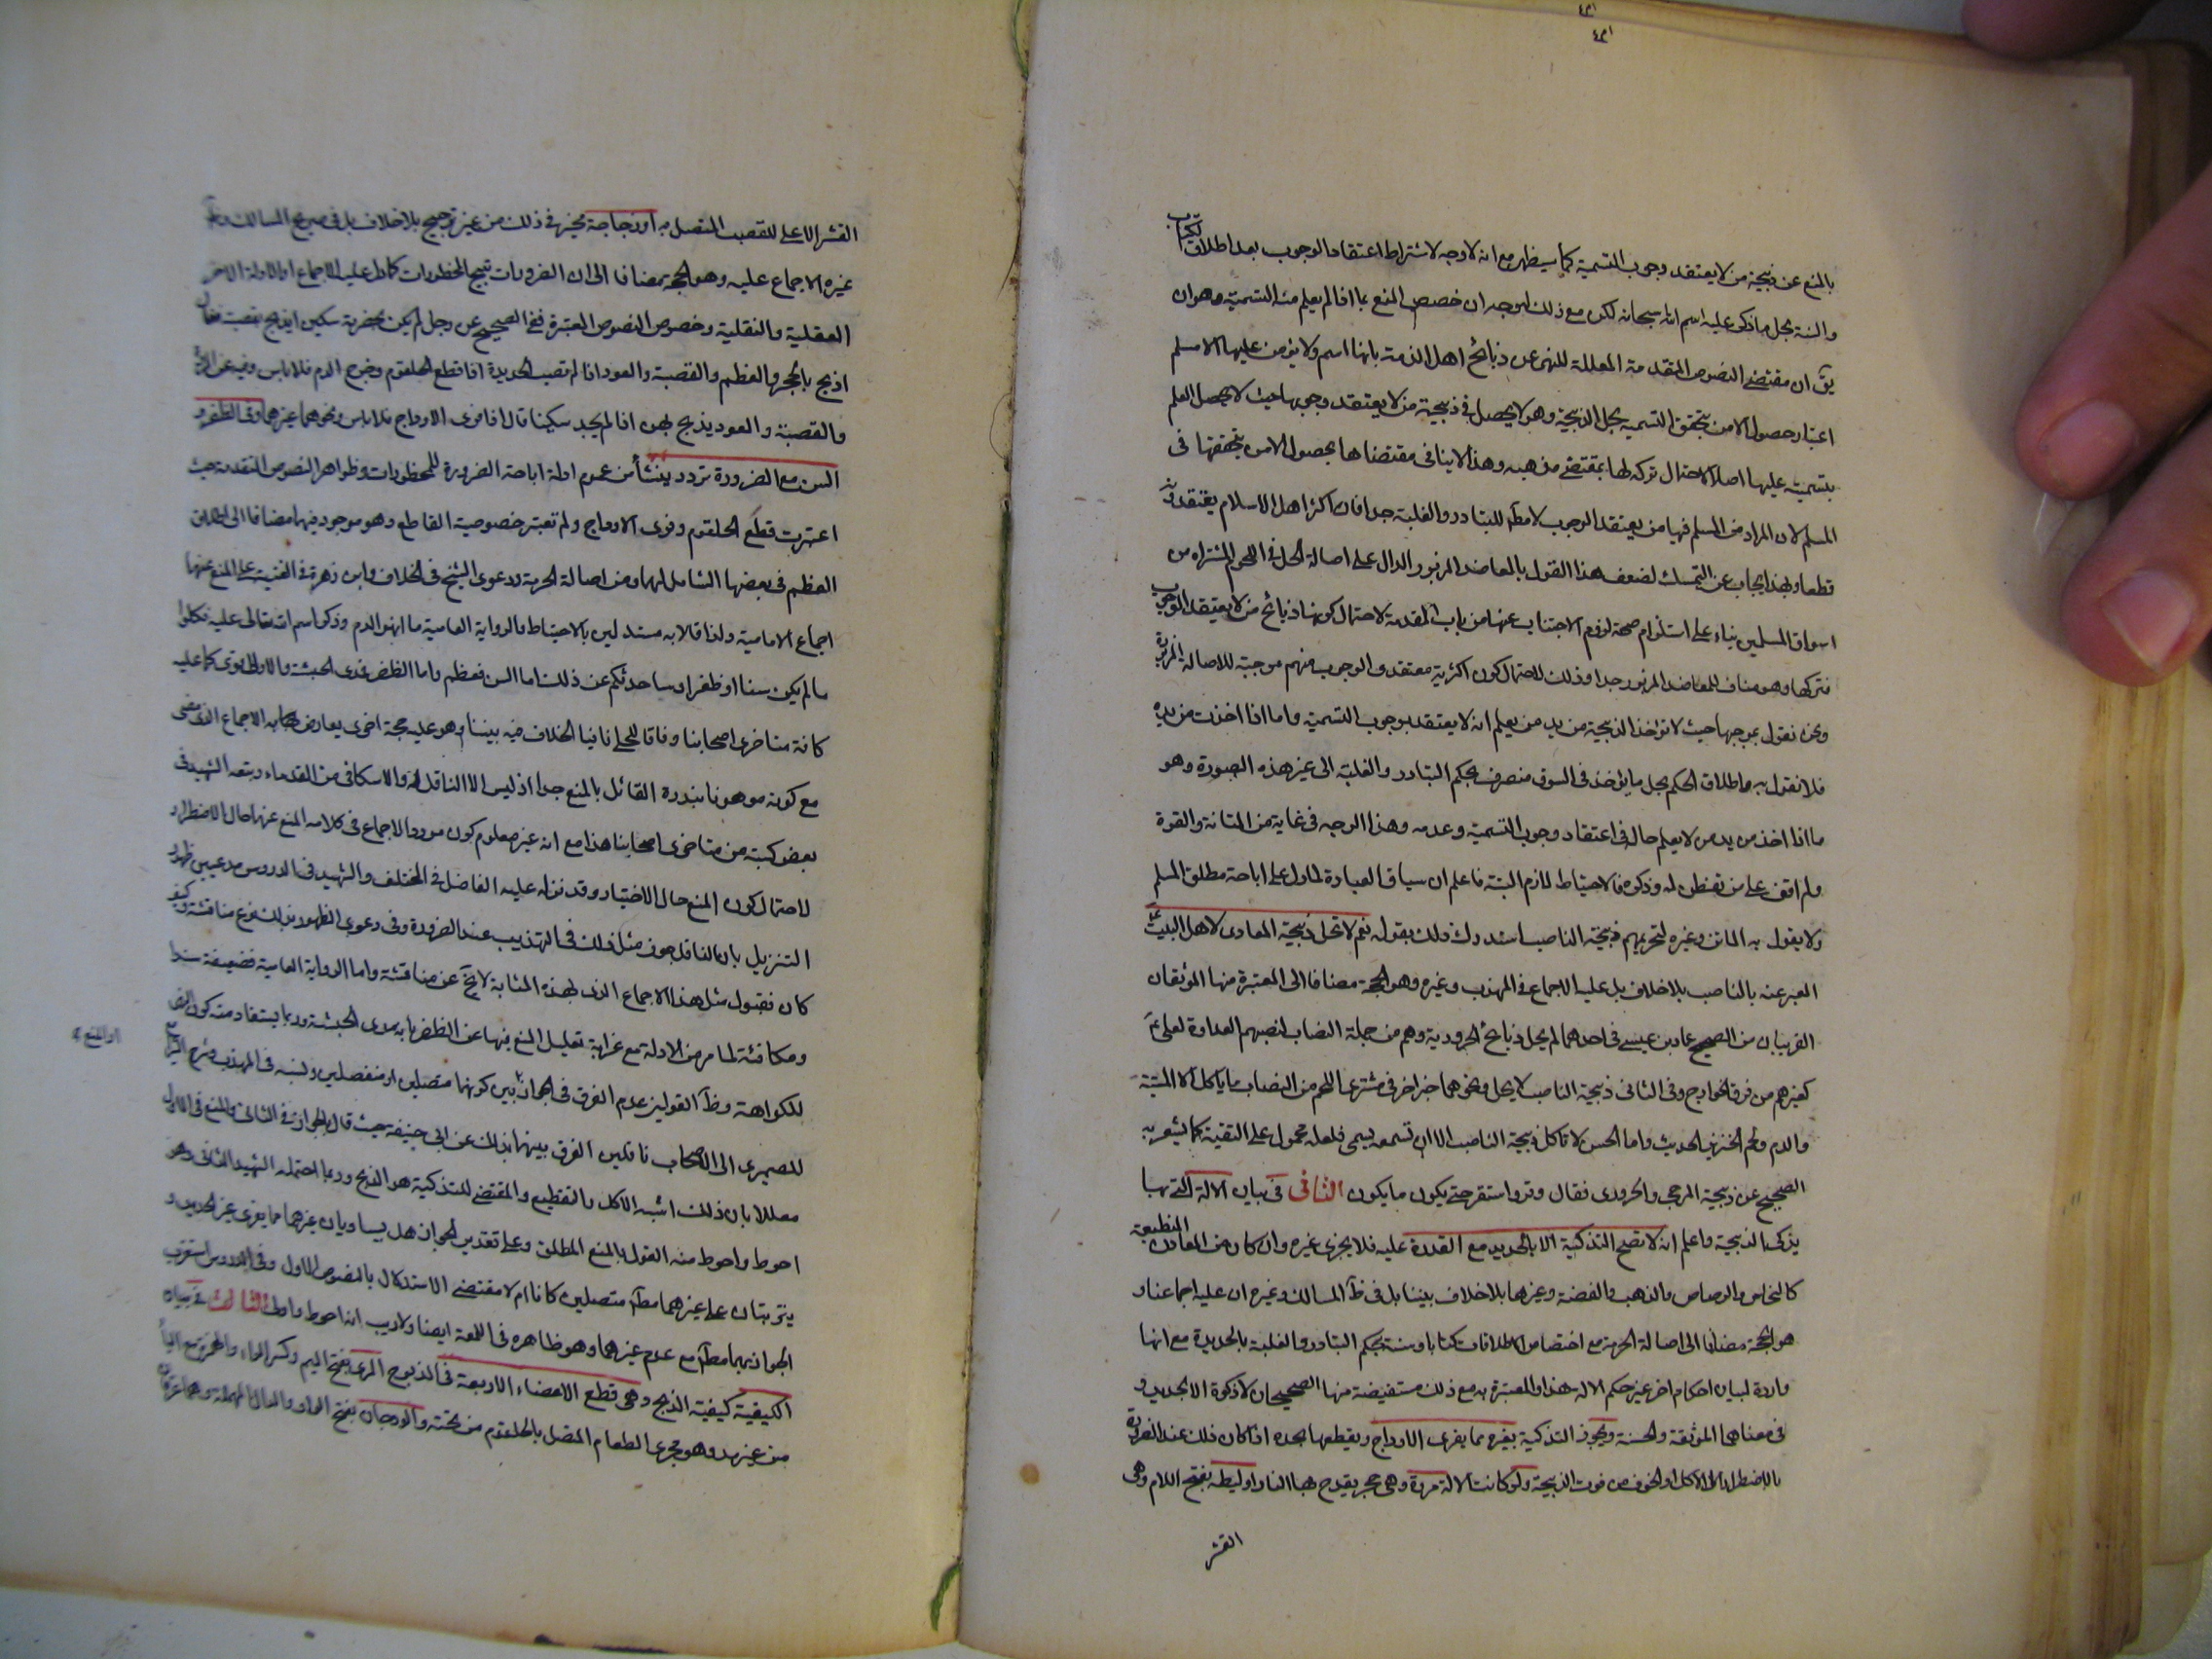 بالمنع عن ذبيحة من لا يعتقد وجوب التسمية كما سيظهر مع انه لا وجه لاشتراط اعتقاد الوجوب بعد اطلاق الكتاب
والسنة بحل ما ذكر عليه اسم الله سبحانه لكن مع ذلك لم يوجد ان خصص المنع بما اذا لم يعلم منه التسمية وهو ان
يق ان مقتضى النصوص المتقدمة المعللة للنهى عن ذبائح اهل الذمة بانها اسم ولا يؤمن عليها الا مسلم
اعتبار حصول الامن بتحقق التسمية بحل الذبيحة وهو لا يحصل فى ذبيحة من لا يعتقد وجوبها حيث لا يحصل العلم
بتسميته عليها اصلا لاحتمال تركه لها بمقتضى مذهبه وهذا لا ينافى مقتضاها بحصول الامن بتحققها فى
المسلم لان المراد من المسلم فيها من يعتقد الوجوب لا مطلقا للتبادر والغلبة جدا فان اكثر اهل الاسلام يعتقدونه
قطعا وبهذا يجاب عن التمسك لضعف هذا القول بالمعاضد المزبور الدال على اصالة الحل فى اللحم المشتراه من
اسواق المسلمين بناء على استلزام صحته لزوم الاجتناب عنها من باب المقدمة لاحتمال كونها ذبائح من لا يعتقد الوجوب
فتركها وهو مناف للمعاضد المزبور جدا وذلك لاحتمال كون اكثرية معتقدى الوجوب منهم موجبة للاصالة المزبورة
ونحن نقول بموجبها حيث لا تؤخذ الذبيحة من يد من يعلم انه لا يعتقد بوجوب التسمية واما اذا اخذت من يده
فلا نقول به واطلاق الحكم بحل ما يؤخذ فى السوق منصرف بحكم التبادر والغلبة الى غير هذه الصورة وهو
ما اذا اخذ من يد من لا يعلم حاله فى اعتقاد وجوب التسمية وعدمه وهذا الوجه فى غاية من المتانة والقوة
ولم اقف على من تفطن له وذكره فالاحتياط لازم البتة فاعلم ان سياق العبارة لما دل على اباحة مطلق المسلم
ولا يقول به الماتن وغيره لتحريمهم ذبيحة الناصب استدرك ذلك بقوله نعم لا تحل ذبيحة المعادى لاهل البيت ع
المعبر عنه بالناصب بلا خلاف بل عليه الاجماع فى المهذب وغيره وهو الحجة مضافا الى المعتبرة منها الموثقان
القريبان من الصحيح بحماد بن عيسى فى احدهما لم يحل ذبائح الحرورية وهم من جملة النصاب لنصبهم العداوة لعلى ع
كغيرهم من فرق الخوارج وفى الثانى ذبيحة الناصب لا يحل ونحوهما خبر اخر فى مشترى اللحم من النصاب ما ياكل الا الميتة
والدم ولحم الخنزير الحديث واما الحسن لا تاكل ذبيحة الناصب الا ان تسمعه يسمى فلعله محمول على التقية كما يشعر به
الصحيح عن ذبيحة المرجى والحرورى فقال وقر واستقر حتى يكون ما يكون الثانى فى بيان الالة التى بها
يذكى الذبيحة واعلم انه لا تصح التذكية الا بالحديد مع القدرة عليه فلا يجزى غيره وان كان من المعادن المنطبعة
كالنحاس والرصاص والذهب والفضة وغيرها بلا خلاف بيننا بل فى ظ المسالك وغيره ان عليه اجماعنا و
هو الحجة مضافا الى اصالة الحرمة مع اختصاص الاطلاقات كتابا وسنة بحكم التبادر والغلبة بالحديدة مع انها
واردة لبيان احكام اخر غير حكم الالة هذا والمعتبرة به مع ذلك مستفيضة منها الصحيحان لا ذكوة الا بحديد و
فى معناهما الموثقة والحسنة ويجوز التذكية بغيره مما يفرى الاوداج ويقطعها بحده اذا كان ذلك عند الضرورة
بالاضطرار الى الاكل او الخوف من فوت الذبيحة ولو كانت الالة مروة وهى حجر يقدح بها النار او ليطة بفتح اللام وهى
القشر
القشر الاعلى للقصب المتصل به او زجاجة مخير فى ذلك من غير ترجيح بلا خلاف بل فى صريح المسالك وظ
غيره الاجماع عليه وهو الحجة مضافا الى ان الضرورات تبيح المحظورات كما دل عليه الاجماع والادلة الاخر
العقلية والنقلية وخصوص النصوص المعتبرة ففى الصحيح عن رجل لم يكن بحضرته سكين ايذبح بقصبة فقال
اذبح بالحجر والعظم والقصبة والعود اذا لم تصب الحديدة اذا قطع الحلقوم وخرج الدم فلا باس وفيه عن المروة
والقصبة والعود يذبح بهن اذا لم يجد سكينا قال اذا فرى الاوداج فلا باس ونحوهما غيرهما وفى الظفر و
السن مع الضرورة تردد ينشأ من عموم ادلة اباحة الضرورة للمحظورات وظواهر النصوص المتقدمة حيث
اعتبرت قطع الحلقوم وفرى الاوداج ولم تعتبر خصوصية القاطع وهو موجود فيهما مضافا الى اطلاق
العظم فى بعضها الشامل لهما ومن اصالة الحرمة ودعوى الشيخ فى الخلاف وابن زهرة فى الغنية على المنع عنهما
اجماع الامامية ولذا قالا به مستدلين بالاحتياط والرواية العامية ما انهر الدم وذكر اسم الله تعالى عليه فكلوا
ما لم يكن سنا او ظفرا وساحدثكم عن ذلك اما السن فعظم واما الظفر فمدى الحبشة والاول اقوى كما عليه
كافة متاخرى اصحابنا وفاقا للحلى نافيا الخلاف فيه بيننا وهو عليه حجة اخرى يعارض بها الاجماع الذى مضى
مع كونه موهونا بندرة القائل بالمنع جدا اذ ليس الا الناقل له والاسكافى من القدماء وتبعه الشهيد فى
بعض كتبه من متاخرى اصحابنا هذا مع انه غير معلوم كون مورد الاجماع فى كلامه المنع عنهما حال الاضطرار
لاحتمال كون المنع حال الاختيار وقد نزله عليه الفاضل فى المختلف والشهيد فى الدروس مدعيين ظهور
التنزيل بان الناقل جوز مثل ذلك فى التهذيب عند الضرورة وفى دعوى الظهور بذلك نوع مناقشة وكيف
كان فقبول مثل هذا الاجماع الذى بهذه المثابة لا يخ عن مناقشة واما الرواية العامية فضعيفة سندا
ومكافئة لما مر من الادلة مع غرابة تعليل المنع فيها عن الظفر بانه مدى الحبشة وربما يستفاد منه كون النهى
للكراهة وظ القولين عدم الفرق فى الجواز بين كونهما متصلين او منفصلين ونسبه فى المهذب وشرح الشرائع
او المنع
للصيمرى الى الاصحاب ناقلين الفرق بينهما بذلك عن ابى حنيفة حيث قال بالجواز فى الثانى والمنع فى الاول
معللا بان ذلك اشبه الاكل والتقطيع والمقتضى للتذكية هو الذبح وربما احتمله الشهيد الثانى وهو
احوط واحوط منه القول بالمنع المطلق وعلى تقدير الجواز هل يساويان غيرهما مما يفرى غير الحديد و
يترتبان على غيرهما مطلقا متصلين كانا ام لا مقتضى الاستدلال بالنصوص الاول وفى الدروس استقرب
الجواز بهما مطلقا مع عدم غيرهما وهو ظاهره فى اللمعة ايضا ولا ريب انه احوط واولى الثالث فى بيان
الكيفية كيفية الذبح وهى قطع الاعضاء الاربعة فى المذبوح المرى بفتح الميم وكسر الراء والهمزة مع الياء
من غير مد وهو مجرى الطعام المتصل بالحلقوم من تحته والودجان بفتح الواو والدال المهملة وهما عرقان